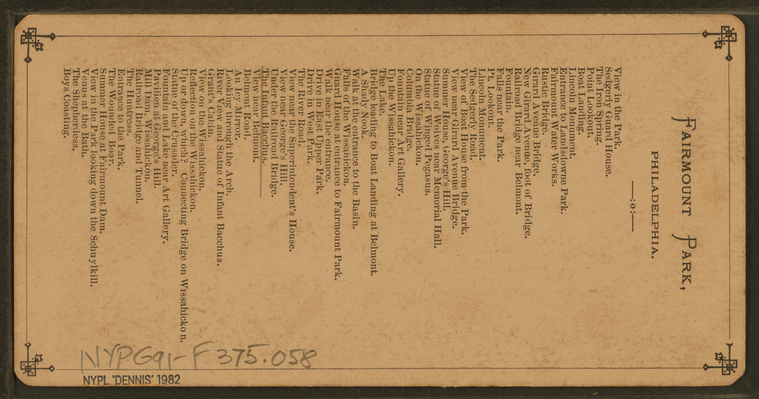 FAIRMOUNT PARK,
PHILADELPHIA.
—:o:—
View in the Park.
Sedgerly Guard House.
The Iron Spring.
Point Lookout.
Boat Landing.
Lincoln Monument.
Entrance to Landsdowne Park.
Fairmount Water Works.
Rustic Bridge.
Girard Avenue Bridge.
New Girard Avenue, foot of Bridge.
Railroad Bridge near Belmont.
Fountain.
Falls near the Park.
Pt. Lookout.
Lincoln Monument.
The Sedgerly Road.
View of Boat House from the Park.
View near Girard Avenue Bridge.
Summer House, George's Hill.
Statue of Wolves near Memorial Hall.
Statue of Winged Pegasus.
On the Wissahickon.
Coming Age.
Fountain near Art Gallery.
Up the Wissahickon.
The Tower.
Bridge leading to Boat Landing at Belmont.
A Shady Nook.
Walk at the entrance to the Basin.
Falls of the Wissahickon.
Guard House entrance to Fairmount Park.
Walk near the entrance.
Drive in East Upper Park.
Drive in West Park.
The River Road.
View near the Superintendent's House.
View at George's Hill.
Under the Railroad Bridge.
The Infant Bacchus.
View from Belmont.
Belmont Road.
Au Revoir.
Looking through the Arch.
River View and Statue of Infant Bacchus.
Grant's Cabin.
View on the Wissahickon.
Reflection on the Wissahickon.
Up or Down, which? Connecting Bridge on Wissahickon.
Statue of the Crusader.
Fountain and Lake near Art Gallery.
Pavilion at George's Hill.
Mill Dam, Wissahickon.
Railroad Bridge and Tunnel.
The Hillside.
Entrance to the Park.
The Wounded Boar.
Summer House at Fairmount Dam.
View in the Park looking down the Schuylkill.
Venus at the Bath.
The Shepherdess.
Boys Coasting.
NYPG91-F375.058
NYPL 'DENNIS' 1982